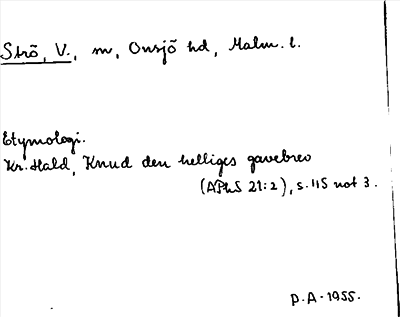 Strö, V., m, Onsjö hd, Malm. l.
Etymologi.
Kr. Hald, Knud den helliges gavebrev
(APhS 21:2), s. 115 not 3.
P.A. 1955.